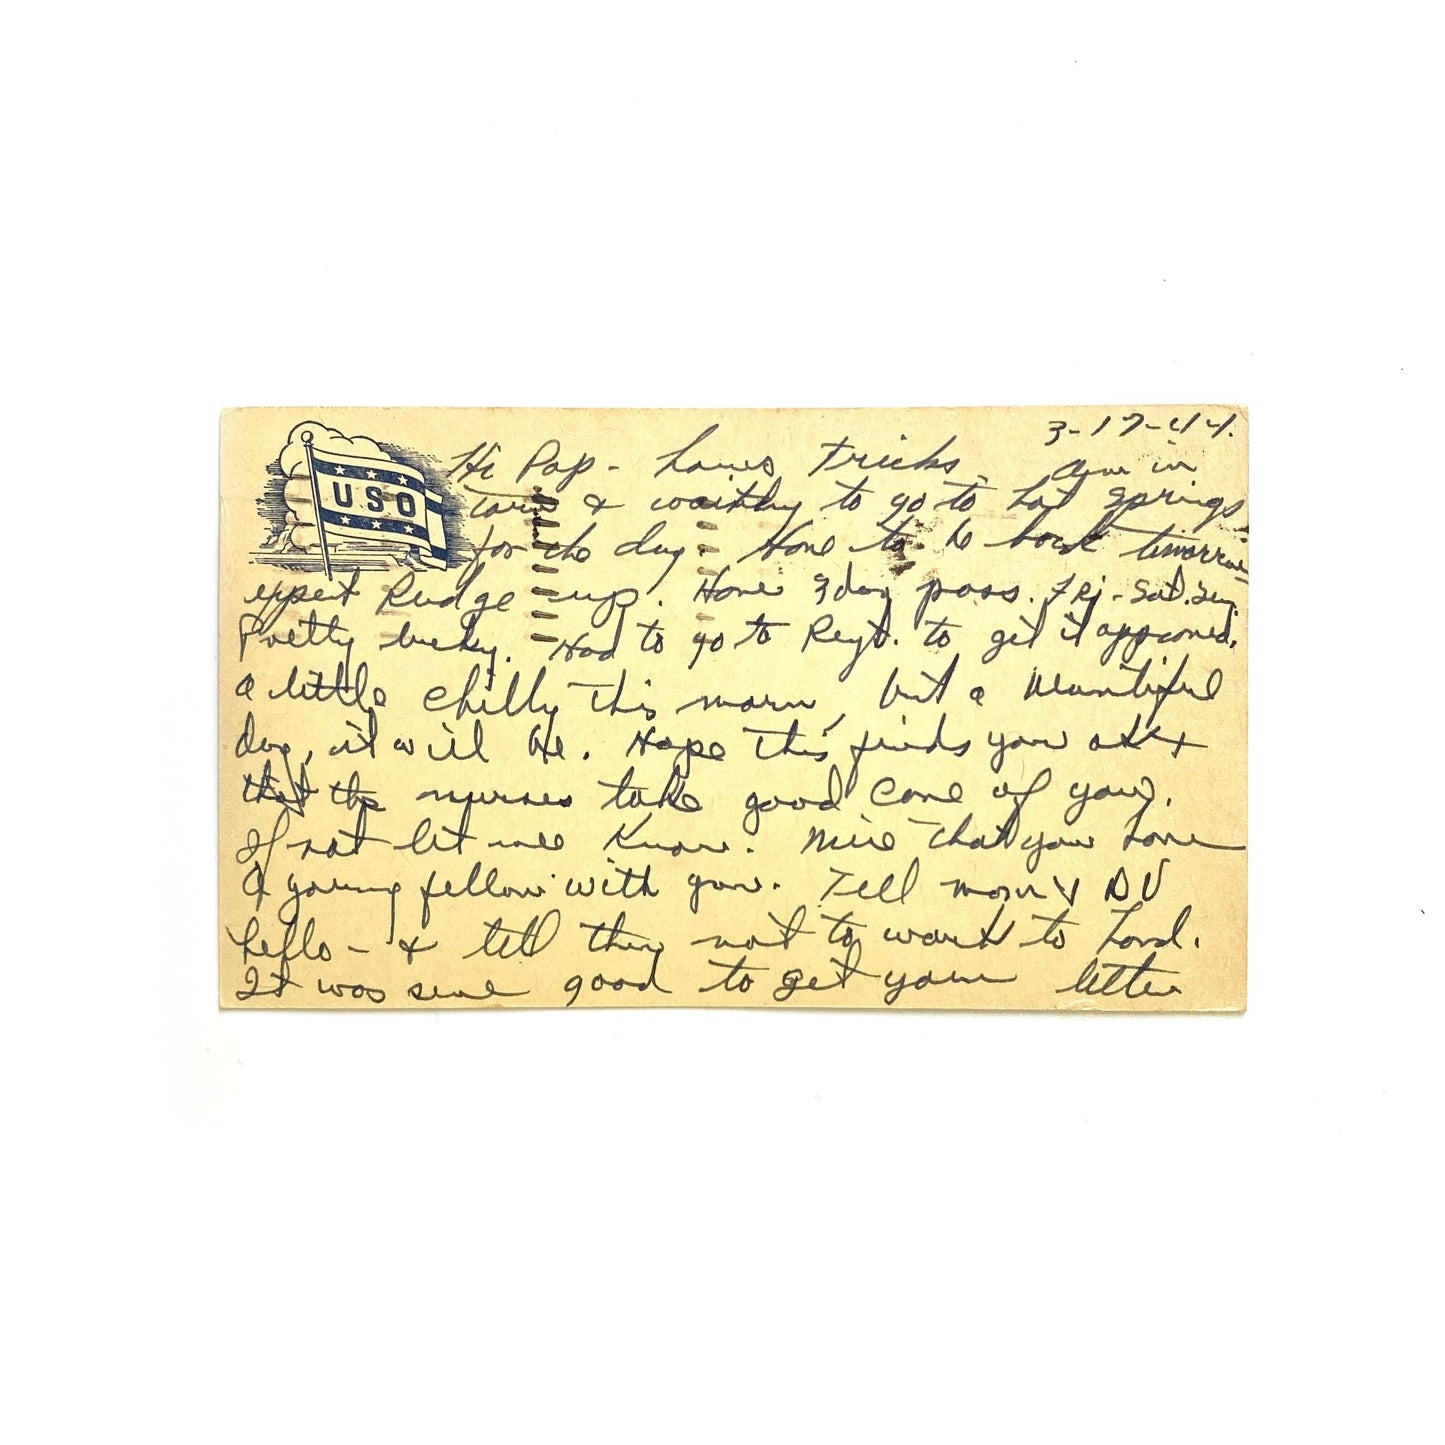 3-17-44.
USO
Hi Pop - hows tricks - Am in
Town & waiting to go to hot springs
for the day. Have to be back tomorrow
expect Rudge up. Have 3 day pass. Fri - Sat. Sun.
Pretty lucky. Had to go to Regt. to get it approved.
a little chilly this morn, but a beautiful
day, it will be. Hope this finds you ok &
that the nurses take good care of you.
If not let me know. Nice that you have
a young fellow with you. Tell mom &
hello - & tell them not to work to hard.
It was sure good to get your letter